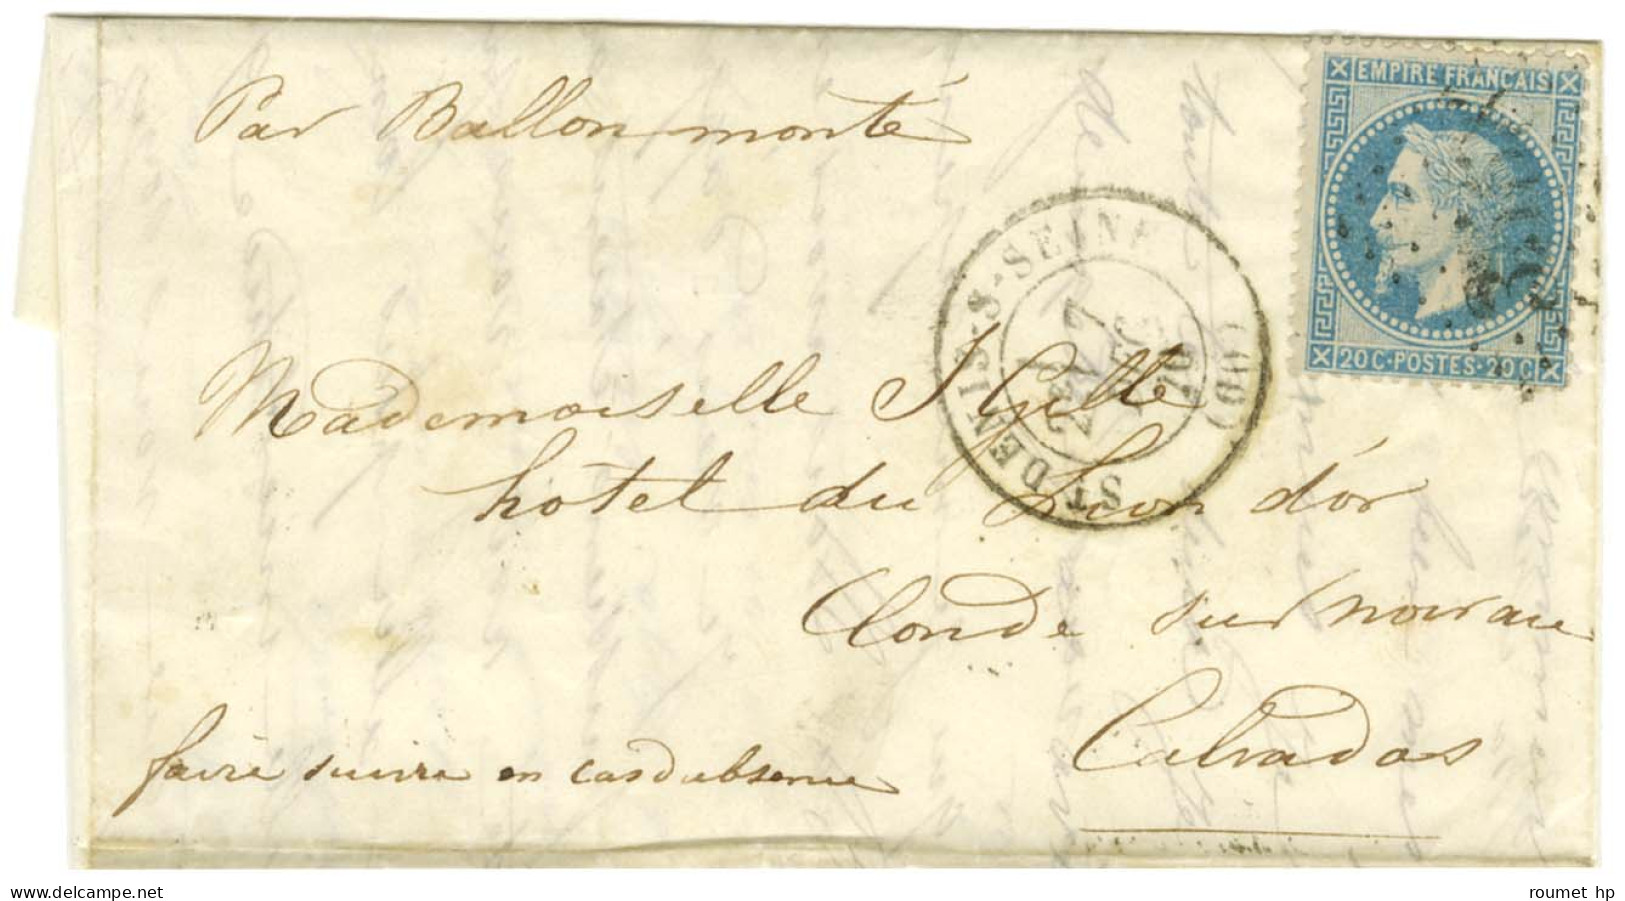 Par Ballon monté
EMPIRE FRANÇAIS
20 C · POSTES · 20 C
ST DENIS-S-SEINE (60)
2E
7
DEC
70
Mademoiselle J Gille
hotel du Lion d'or
Conde sur noireau
Calvados
faire suivre en cas d'absence
roumet hp